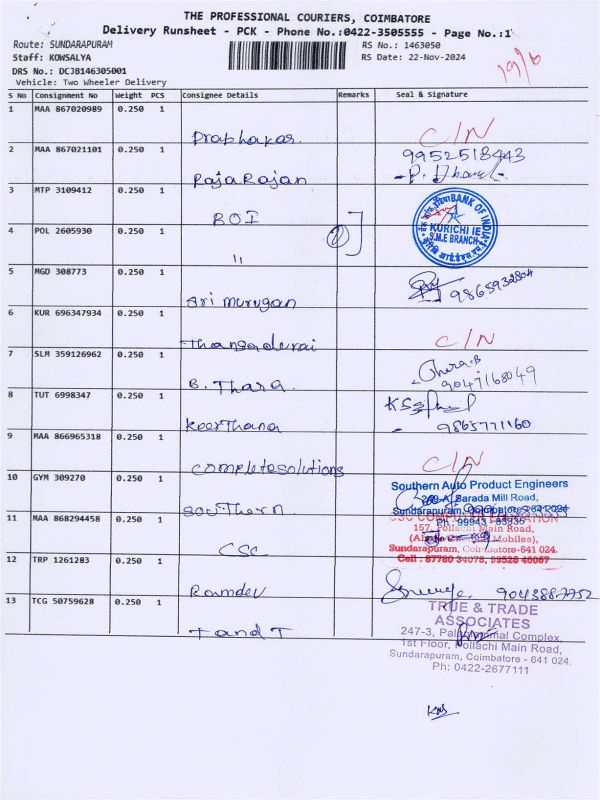 THE PROFESSIONAL COURIERS, COIMBATORE
Delivery Runsheet - PCK - Phone No.:0422-3505555 - Page No.:1
Route: SUNDARAPURAM
RS No.: 1463050
Staff: KOWSALYA
RS Date: 22-Nov-2024
DRS No.: DCJB146305001
Vehicle: Two Wheeler Delivery
S No Consignment No Weight PCS Consignee Details Remarks Seal & Signature
1 MAA 867020989 0.250 1
Prabhakar C/N
2 MAA 867021101 0.250 1 9952518443
RajaRajan P. Dhanush
3 MTP 3109412 0.250 1
BOI
BANK OF INDIA
KURICHI IE
S.M.E BRANCH
4 POL 2605930 0.250 1
" 2
5 MGD 308773 0.250 1
Sri murugan 9865932804
6 KUR 696347934 0.250 1
Thangadurai C/N
7 SLM 359126962 0.250 1
B. Thara. Thara.B
9047168049
8 TUT 6998347 0.250 1
KeerThana 9865771160
9 MAA 866965318 0.250 1
completesolutions C/N
10 GYM 309270 0.250 1
Southern
Southern Auto Product Engineers
209-A, Sarada Mill Road,
Sundarapuram, Coimbatore - 641 024
Ph : 99943 - 83935
11 MAA 868294458 0.250 1
CSC
157, Pollachi Main Road,
Sundarapuram, Coimbatore-641 024.
Cell : 87780 34078, 99526 46067
12 TRP 1261283 0.250 1
Ramdev 9043887752
13 TCG 50759628 0.250 1
T and T
TRUE & TRADE
ASSOCIATES
247-3, Palaniammal Complex,
1st Floor, Pollachi Main Road,
Sundarapuram, Coimbatore - 641 024.
Ph: 0422-2677111